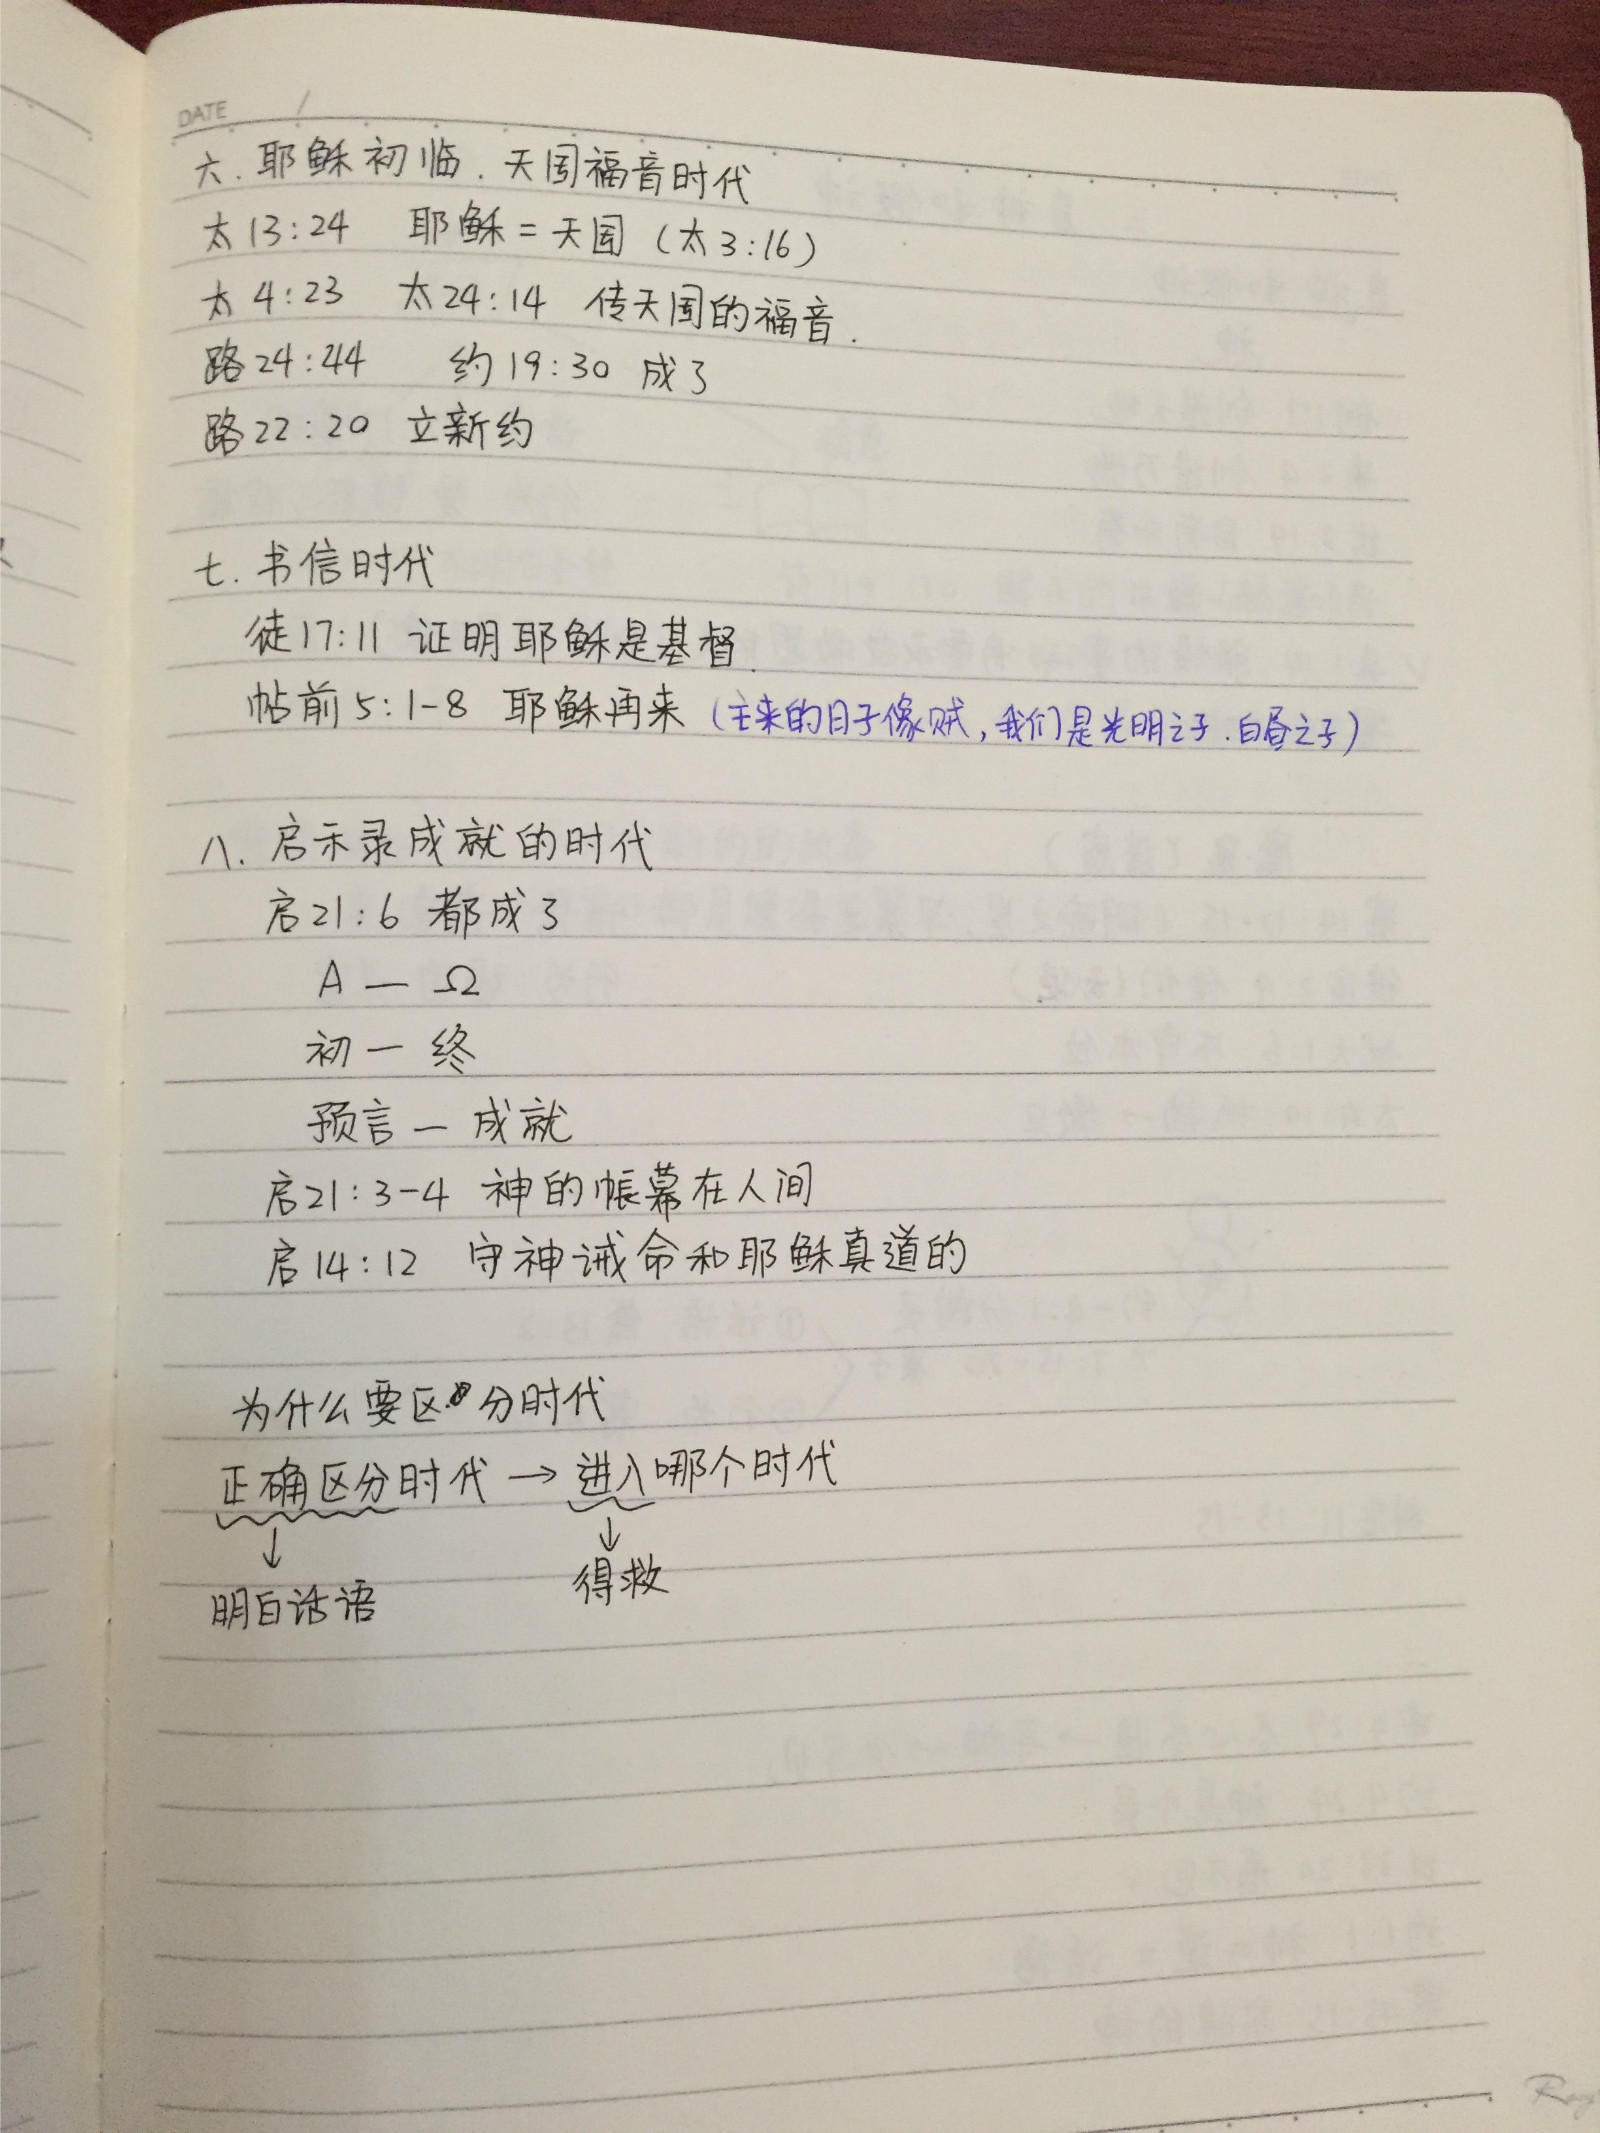 DATE /
六. 耶稣初临. 天国福音时代
太13:24 耶稣=天国 (太3:16)
太4:23 太24:14 传天国的福音.
路24:44 约19:30 成了
路22:20 立新约
七. 书信时代
徒17:11 证明耶稣是基督.
帖前5:1-8 耶稣再来 (主来的日子像贼, 我们是光明之子. 白昼之子)
八. 启示录成就的时代
启21:6 都成了
A — Ω
初 — 终
预言 — 成就
启21:3-4 神的帐幕在人间
启14:12 守神诫命和耶稣真道的
为什么要区分时代
正确区分时代 → 进入哪个时代
↓ ↓
明白话语 得救